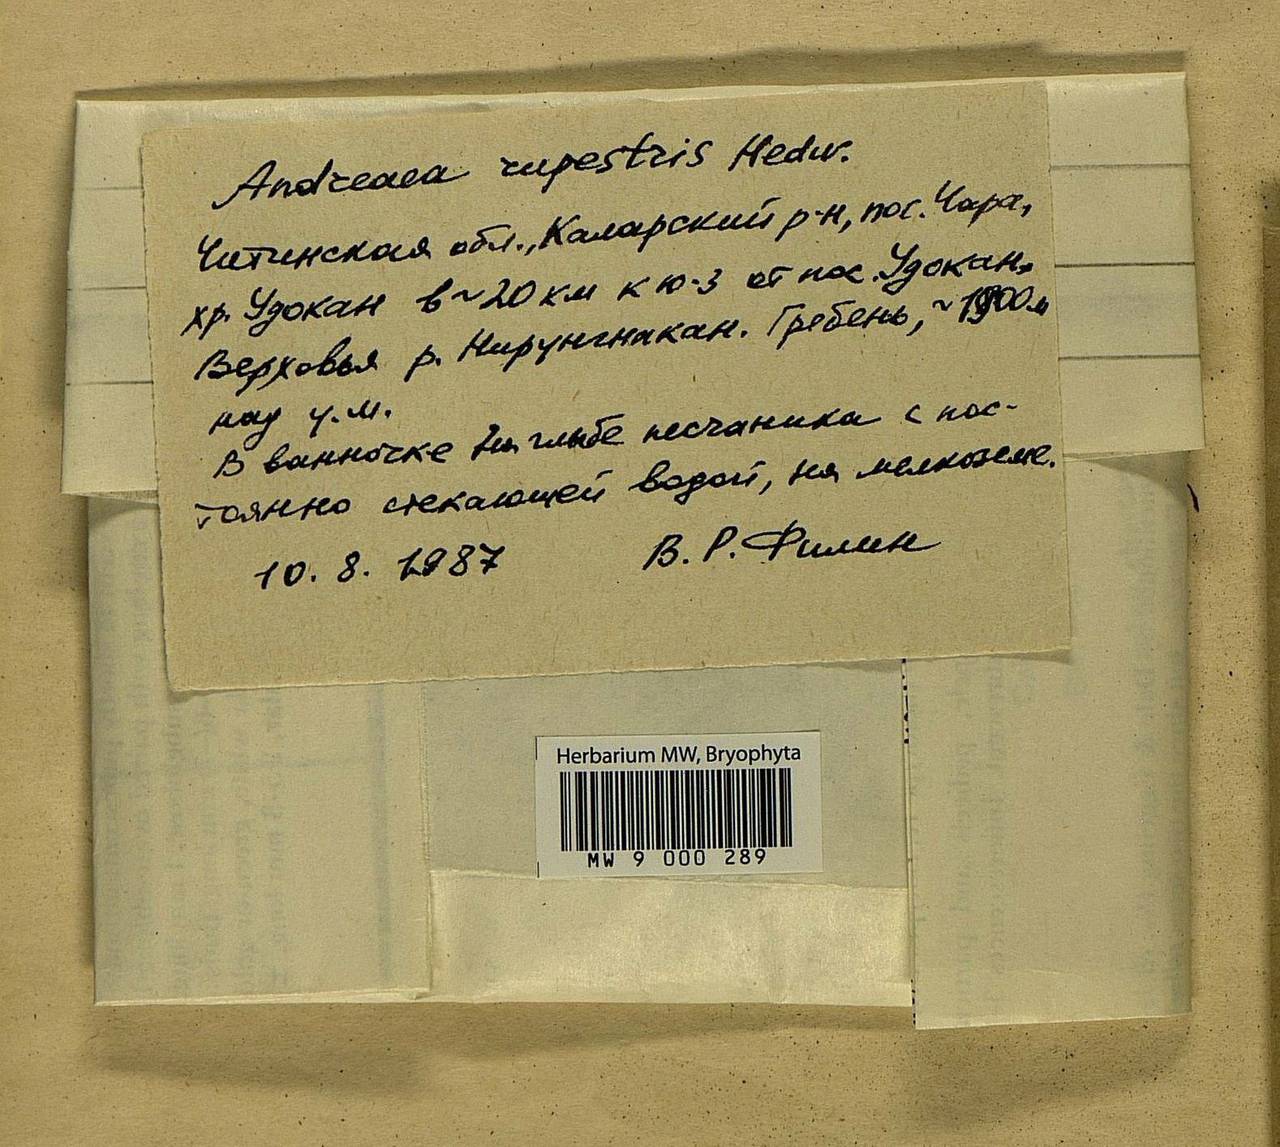 Andreaea rupestris Hedw.
Читинская обл., Каларский р-н, пос. Чара,
хр. Удокан в ~20 км к ю-з от пос. Удокан.
Верховья р. Нирунгнакан. Гребень, ~1900м
над у.м.
В ванночке на глыбе песчаника с пос-
тоянно стекающей водой, на мелкоземе.
10. 8. 1987 В. Р. Филин
Herbarium MW, Bryophyta
MW 9 000 289